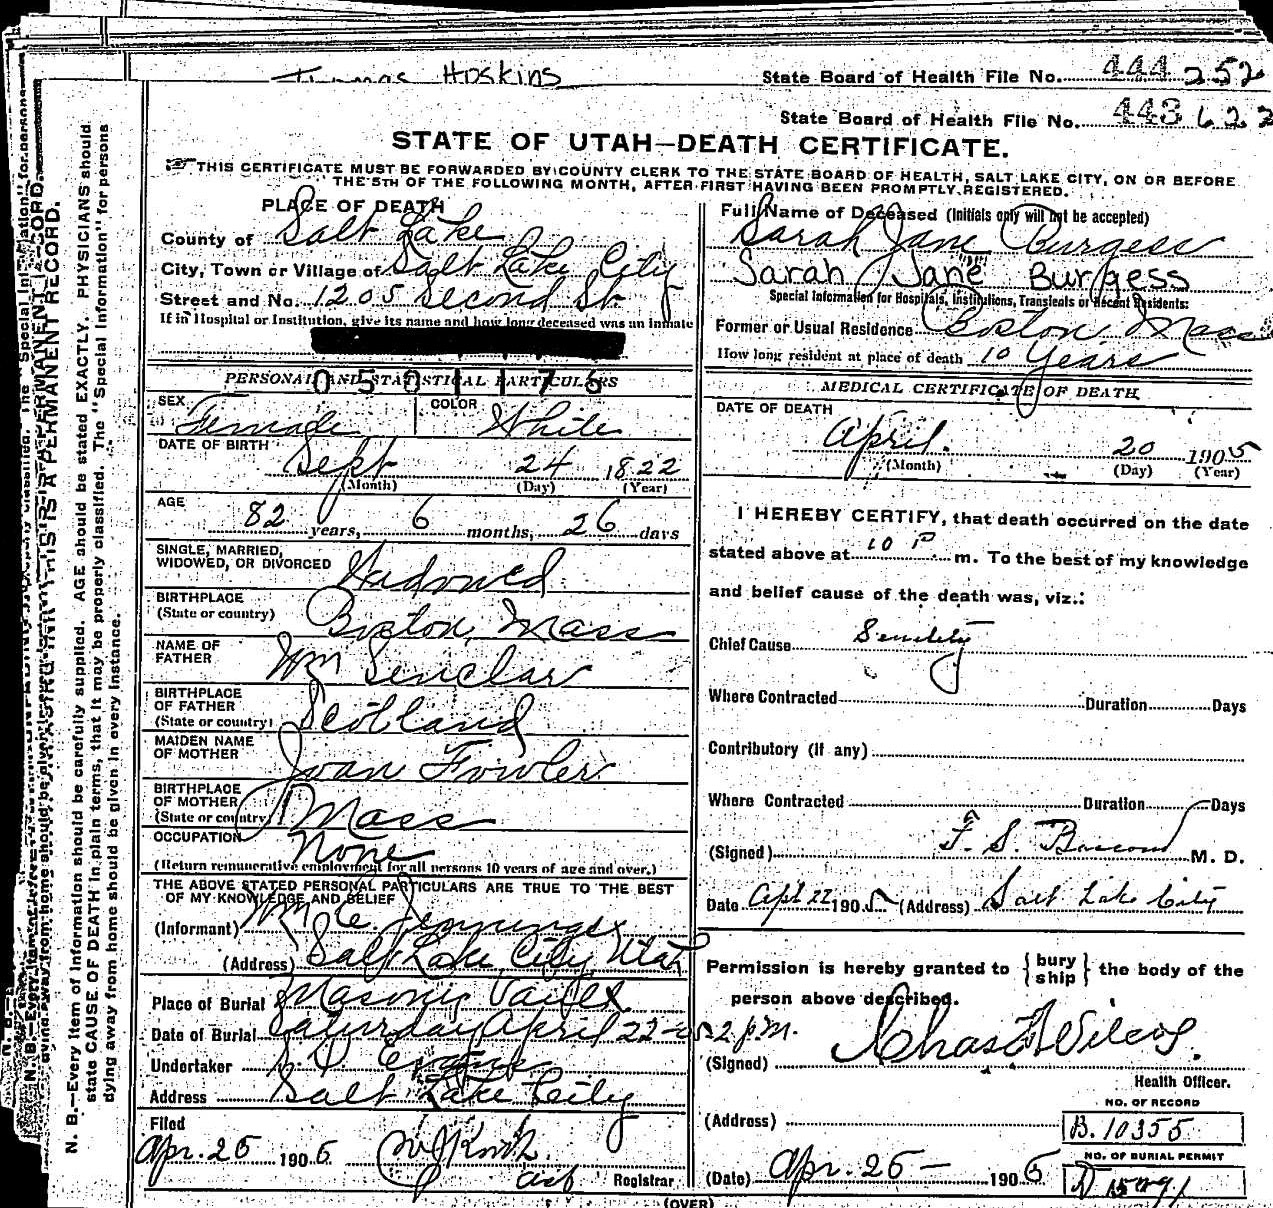 Thomas Hoskins
State Board of Health File No. 444 252
State Board of Health File No. 443 622
STATE OF UTAH—DEATH CERTIFICATE.
THIS CERTIFICATE MUST BE FORWARDED BY COUNTY CLERK TO THE STATE BOARD OF HEALTH, SALT LAKE CITY, ON OR BEFORE
THE 5TH OF THE FOLLOWING MONTH, AFTER FIRST HAVING BEEN PROMPTLY REGISTERED.
PLACE OF DEATH
County of Salt Lake
City, Town or Village of Salt Lake City
Street and No. 1205 Second St
If in Hospital or Institution, give its name and how long deceased was an inmate
0501176
PERSONAL AND STATISTICAL PARTICULARS
SEX Female COLOR White
DATE OF BIRTH Sept 24 1822
(Month) (Day) (Year)
AGE 82 years, 6 months, 26 days
SINGLE, MARRIED,
WIDOWED, OR DIVORCED Widowed
BIRTHPLACE
(State or country) Boston, Mass
NAME OF
FATHER Wm Senclar
BIRTHPLACE
OF FATHER
(State or country) Scotland
MAIDEN NAME
OF MOTHER Joan Fowler
BIRTHPLACE
OF MOTHER
(State or country) Mass
OCCUPATION None
(Return remunerative employment for all persons 10 years of age and over.)
THE ABOVE STATED PERSONAL PARTICULARS ARE TRUE TO THE BEST
OF MY KNOWLEDGE AND BELIEF
(Informant) Wm C. Jennings
(Address) Salt Lake City Utah
Place of Burial Masonic Vault
Date of Burial Saturday April 22-05 2 p.m.
Undertaker Evans
Address Salt Lake City
Filed
Apr. 25 1905
Registrar
Full Name of Deceased (Initials only will not be accepted)
Sarah Jane Burgess
Sarah Jane Burgess
Special Information for Hospitals, Institutions, Transients or Recent Residents:
Former or Usual Residence Boston, Mass
How long resident at place of death 10 Years
MEDICAL CERTIFICATE OF DEATH
DATE OF DEATH
April 20 1905
(Month) (Day) (Year)
I HEREBY CERTIFY, that death occurred on the date
stated above at 10 P. m. To the best of my knowledge
and belief cause of the death was, viz.:
Chief Cause Senility
Where Contracted Duration Days
Contributory (if any)
Where Contracted Duration Days
(Signed) F. S. Bascom M. D.
Date Apl 22 1905 (Address) Salt Lake City
Permission is hereby granted to {bury ship} the body of the
person above described.
(Signed) Chas F Wilcox.
Health Officer.
(Address)
NO. OF RECORD
B. 10355
NO. OF BURIAL PERMIT
(Date) Apr. 25 — 1905
(OVER)
N. B.—Every item of information should be carefully supplied. AGE should be stated EXACTLY. PHYSICIANS should
state CAUSE OF DEATH in plain terms, that it may be properly classified. The "Special Information" for persons
dying away from home should be given in every instance.
THIS IS A PERMANENT RECORD.